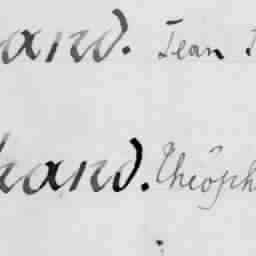 and. Jean
hand. Théoph